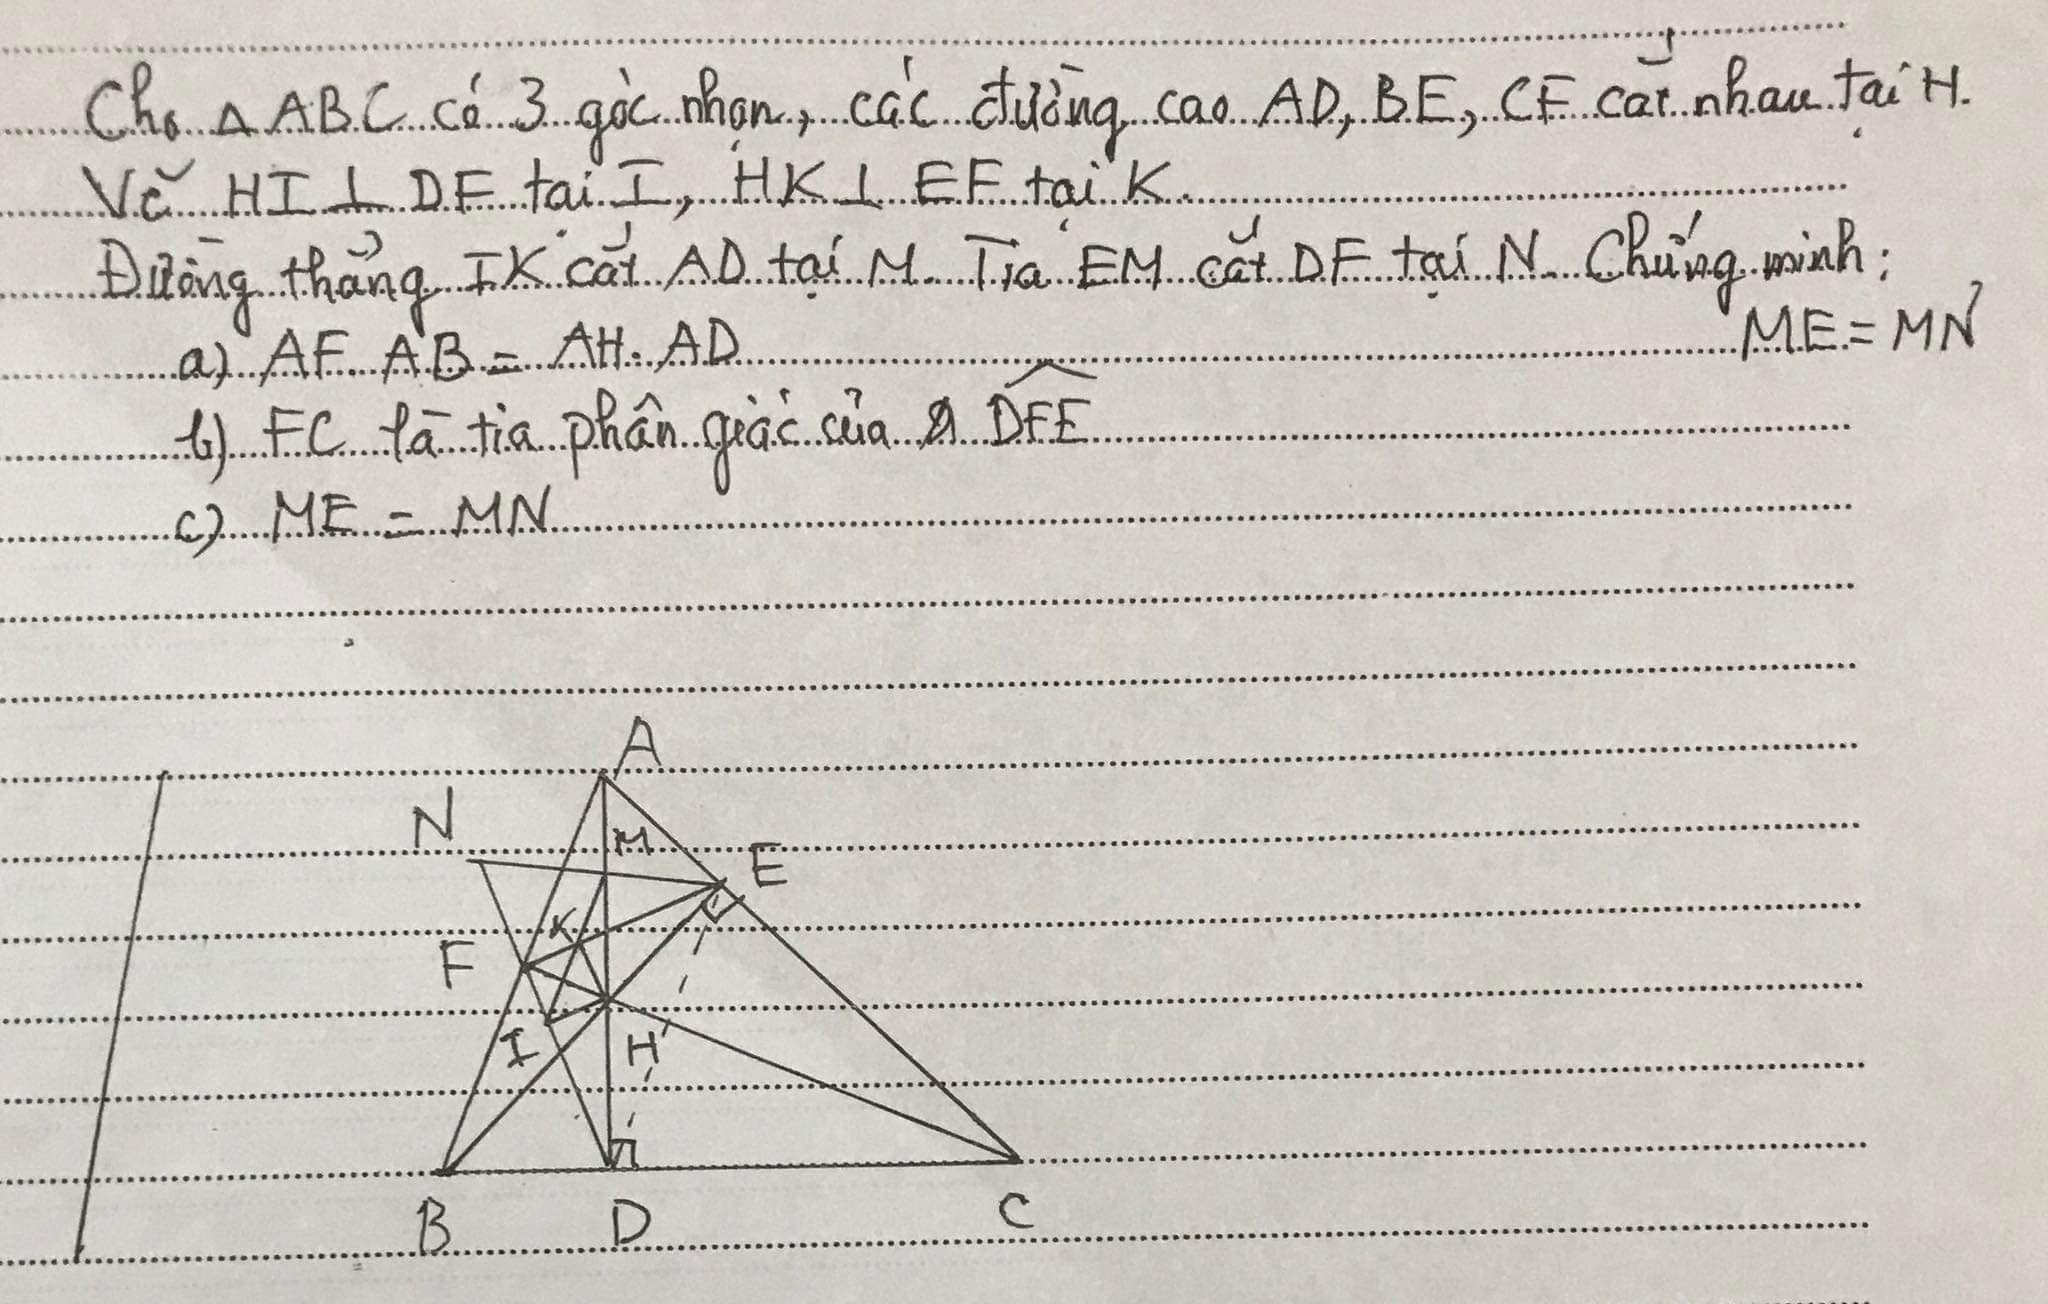 Cho △ABC có 3 góc nhọn, các đường cao AD, BE, CF cắt nhau tại H.
Vẽ HI ⊥ DF tại I, HK ⊥ EF tại K.
Đường thẳng IK cắt AD tại M. Tia EM cắt DF tại N. Chứng minh:
ME = MN
a) AF. AB = AH. AD
b) FC là tia phân giác của DFE
c) ME = MN
A
N
M
E
K
F
I
H
B
D
C